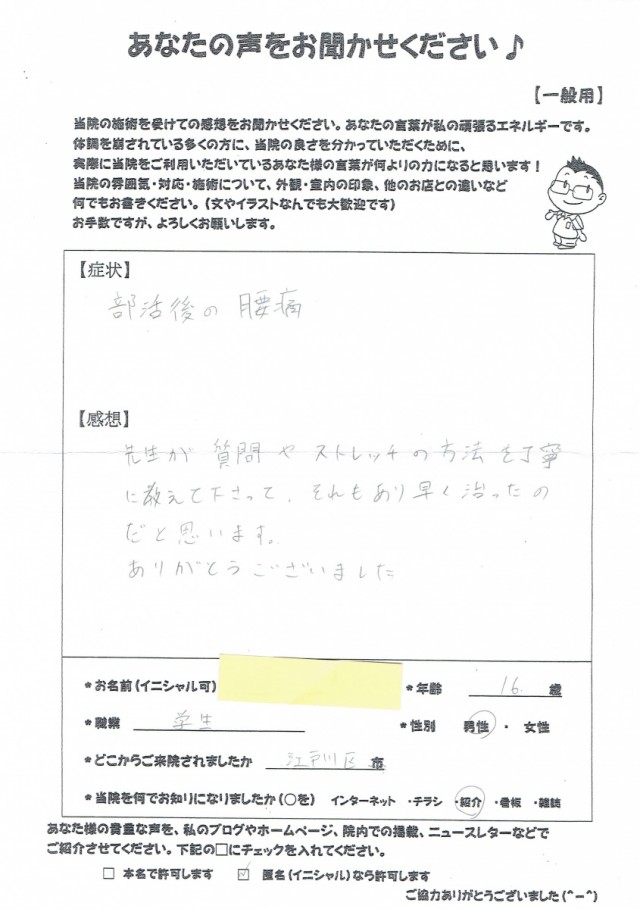 あなたの声をお聞かせください♪
【一般用】
当院の施術を受けての感想をお聞かせください。あなたの言葉が私の頑張るエネルギーです。
体調を崩されている多くの方に、当院の良さを分かっていただくために、
実際に当院をご利用いただいているあなた様の言葉が何よりの力になると思います！
当院の雰囲気・対応・施術について、外観・室内の印象、他のお店との違いなど
何でもお書きください。（文やイラストなんでも大歓迎です）
お手数ですが、よろしくお願いします。
【症状】
部活後の腰痛
【感想】
先生が質問やストレッチの方法を丁寧
に教えて下さって、それもあり早く治ったの
だと思います。
ありがとうございました
＊お名前（イニシャル可） ＊年齢 16 歳
＊職業 学生 ＊性別 男性 ・ 女性
＊どこからご来院されましたか 江戸川区 市
＊当院を何でお知りになりましたか（○を） インターネット ・チラシ ・紹介 ・看板 ・雑誌
あなた様の貴重な声を、私のブログやホームページ、院内での掲載、ニュースレターなどで
ご紹介させてください。下記の□にチェックを入れてください。
□ 本名で許可します ☑ 匿名（イニシャル）なら許可します
ご協力ありがとうございました（＾－＾）